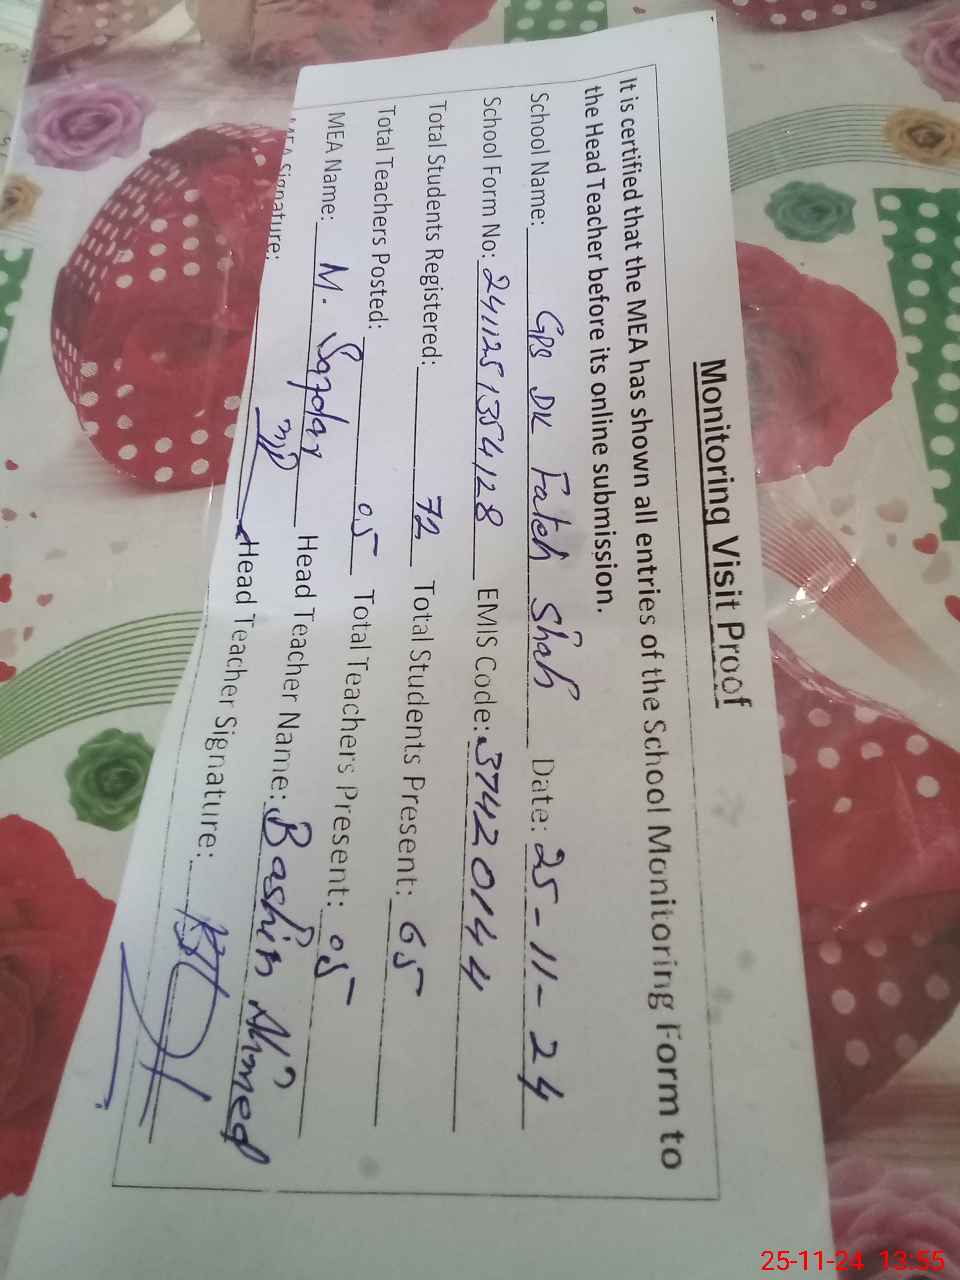 Monitoring Visit Proof
It is certified that the MEA has shown all entries of the School Monitoring Form to
the Head Teacher before its online submission.
School Name: GPS DK Fateh Shah Date: 25-11-24
School Form No: 2411251354128 EMIS Code: 37420144
Total Students Registered: 72 Total Students Present: 65
Total Teachers Posted: 05 Total Teachers Present: 05
MEA Name: M. Safdar Head Teacher Name: Bashir Ahmed
MEA Signature: Head Teacher Signature:
25-11-24 13:55